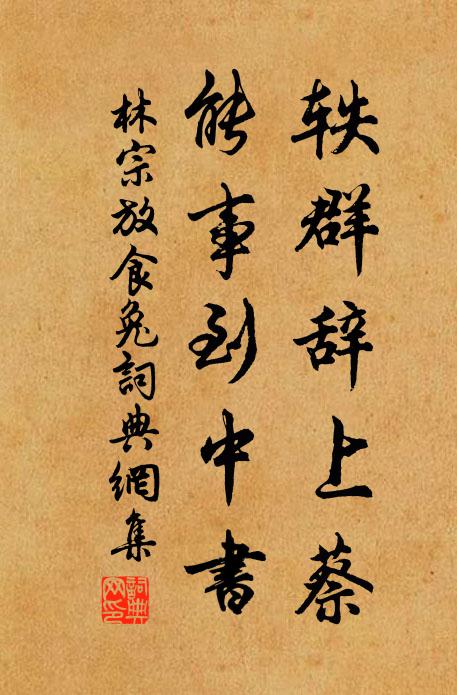 轶群辞上蔡
能事到中书
林宗放食兔詞典網集
詞典网印